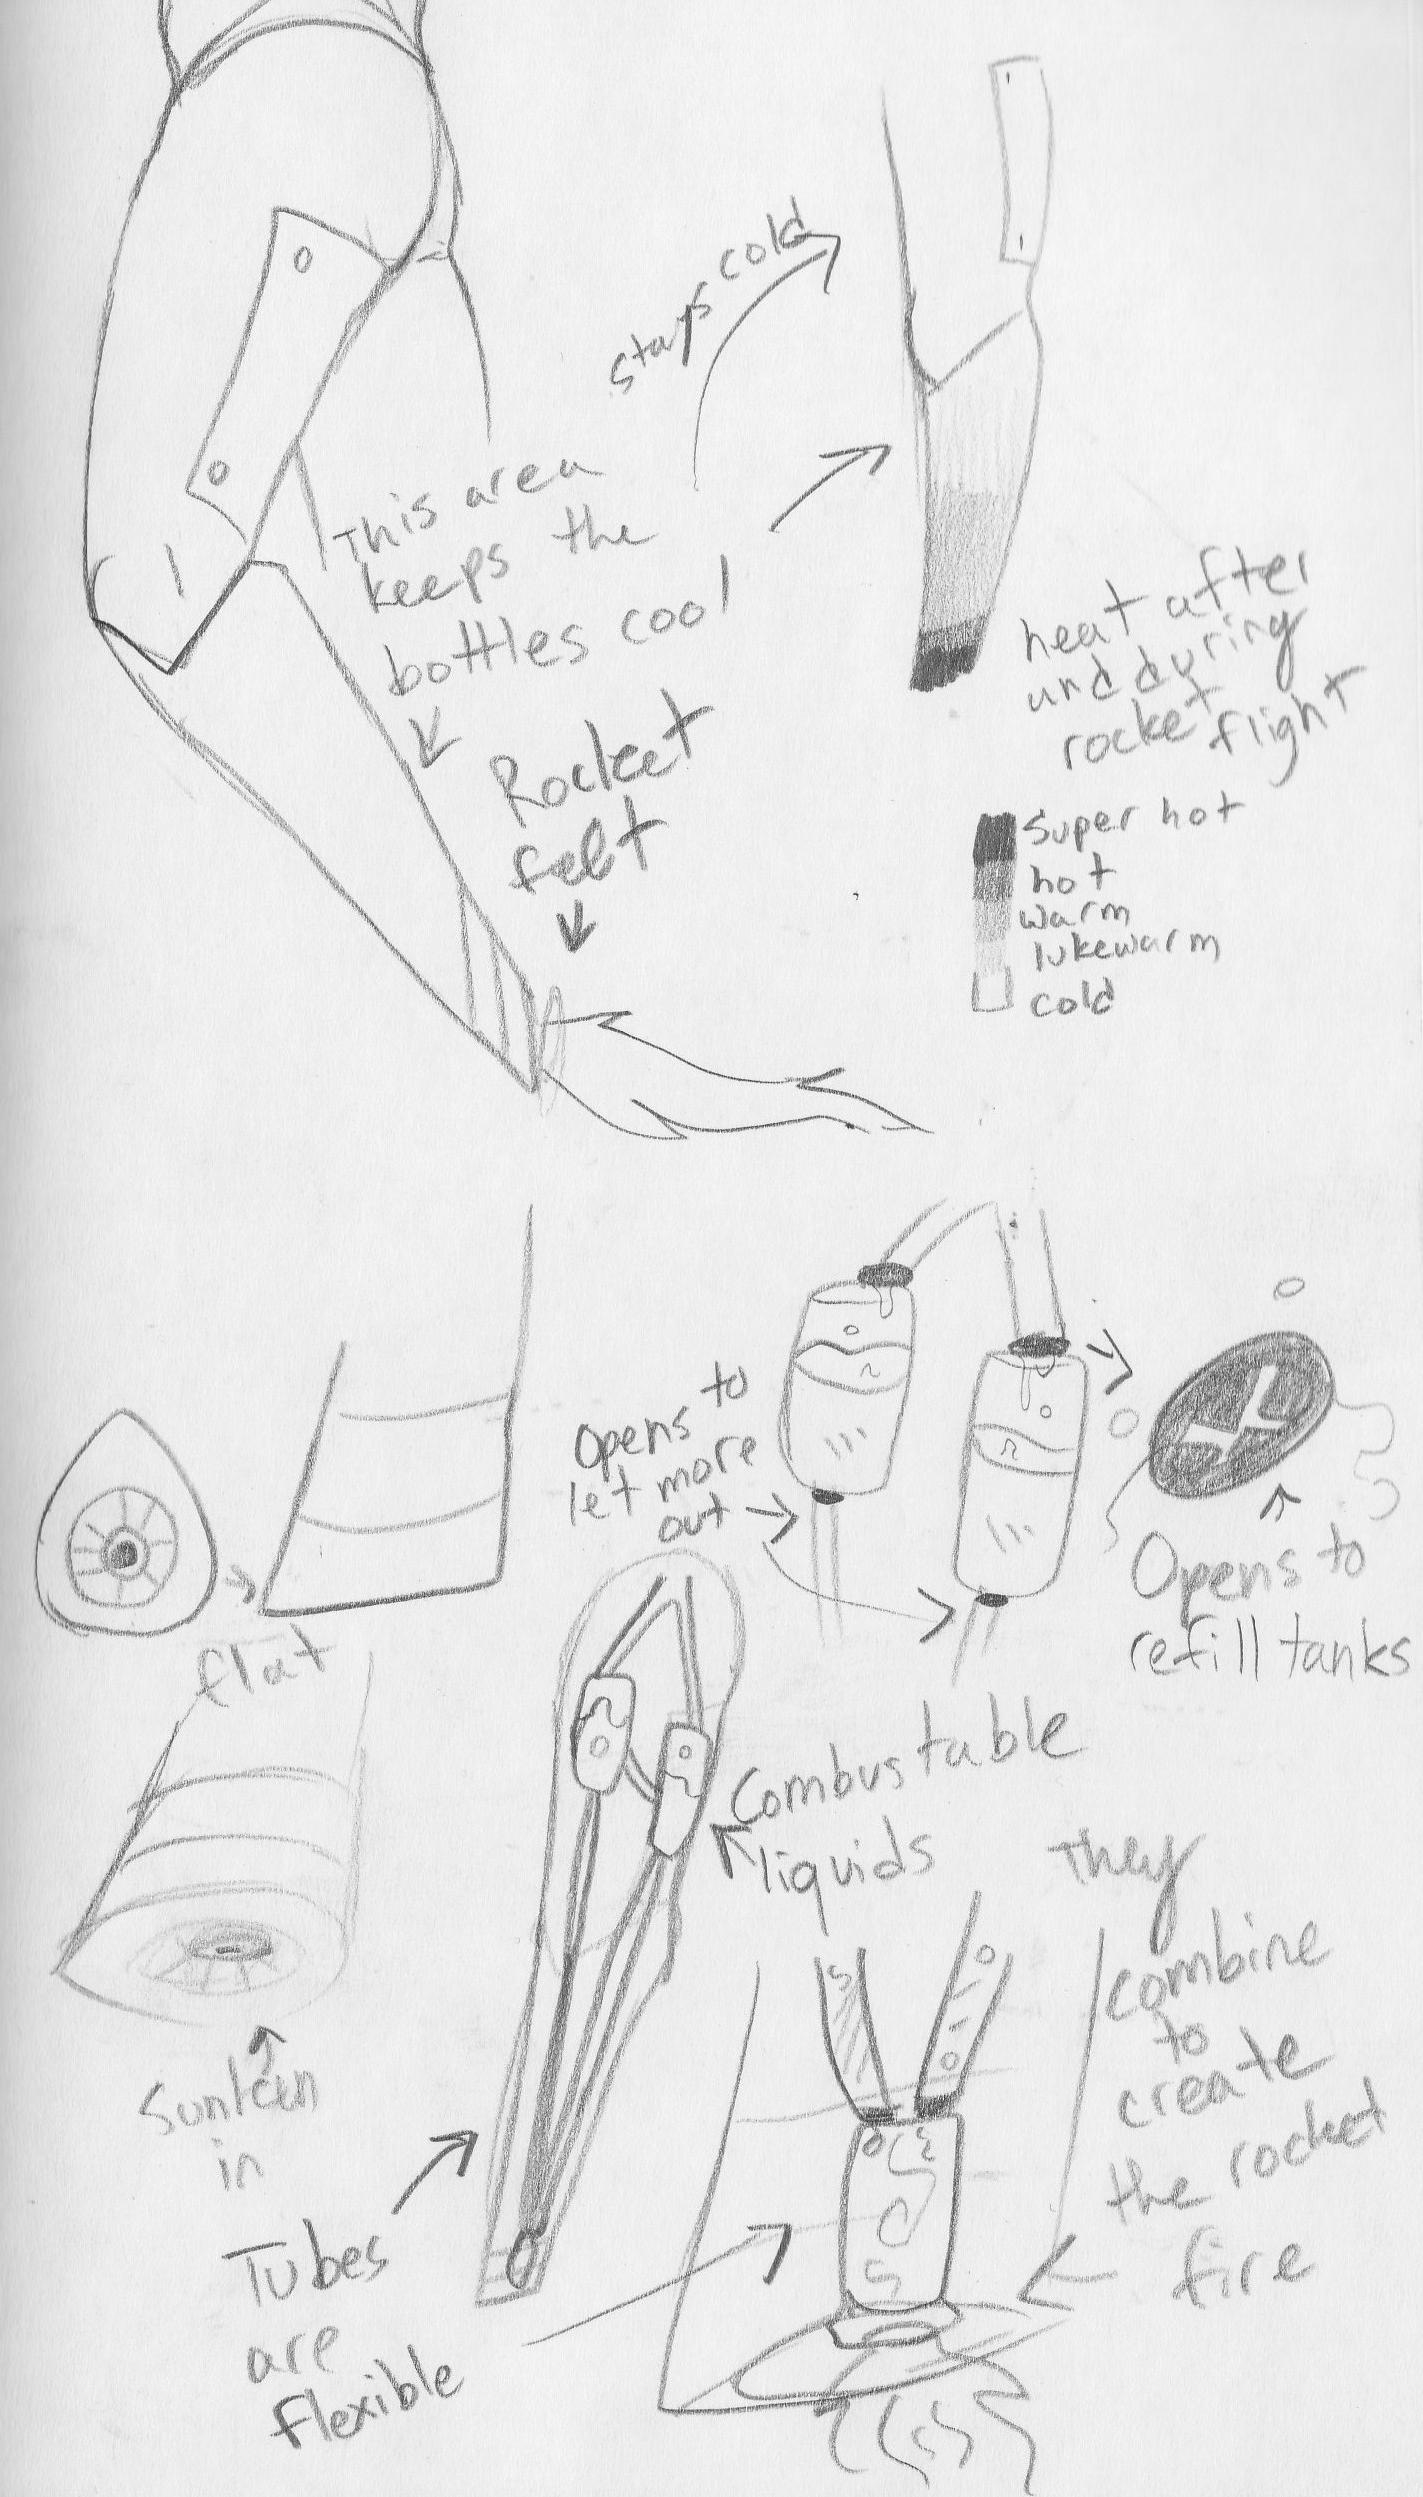 stays cold
This area
keeps the
bottles cool
Rocket
feet
heat after
and during
rocket flight
Super hot
hot
warm
lukewarm
cold
Opens to
let more
out
Opens to
refill tanks
flat
Combustable
liquids
They
combine
to
create
the rocket
fire
Sunken
in
Tubes
are
flexible